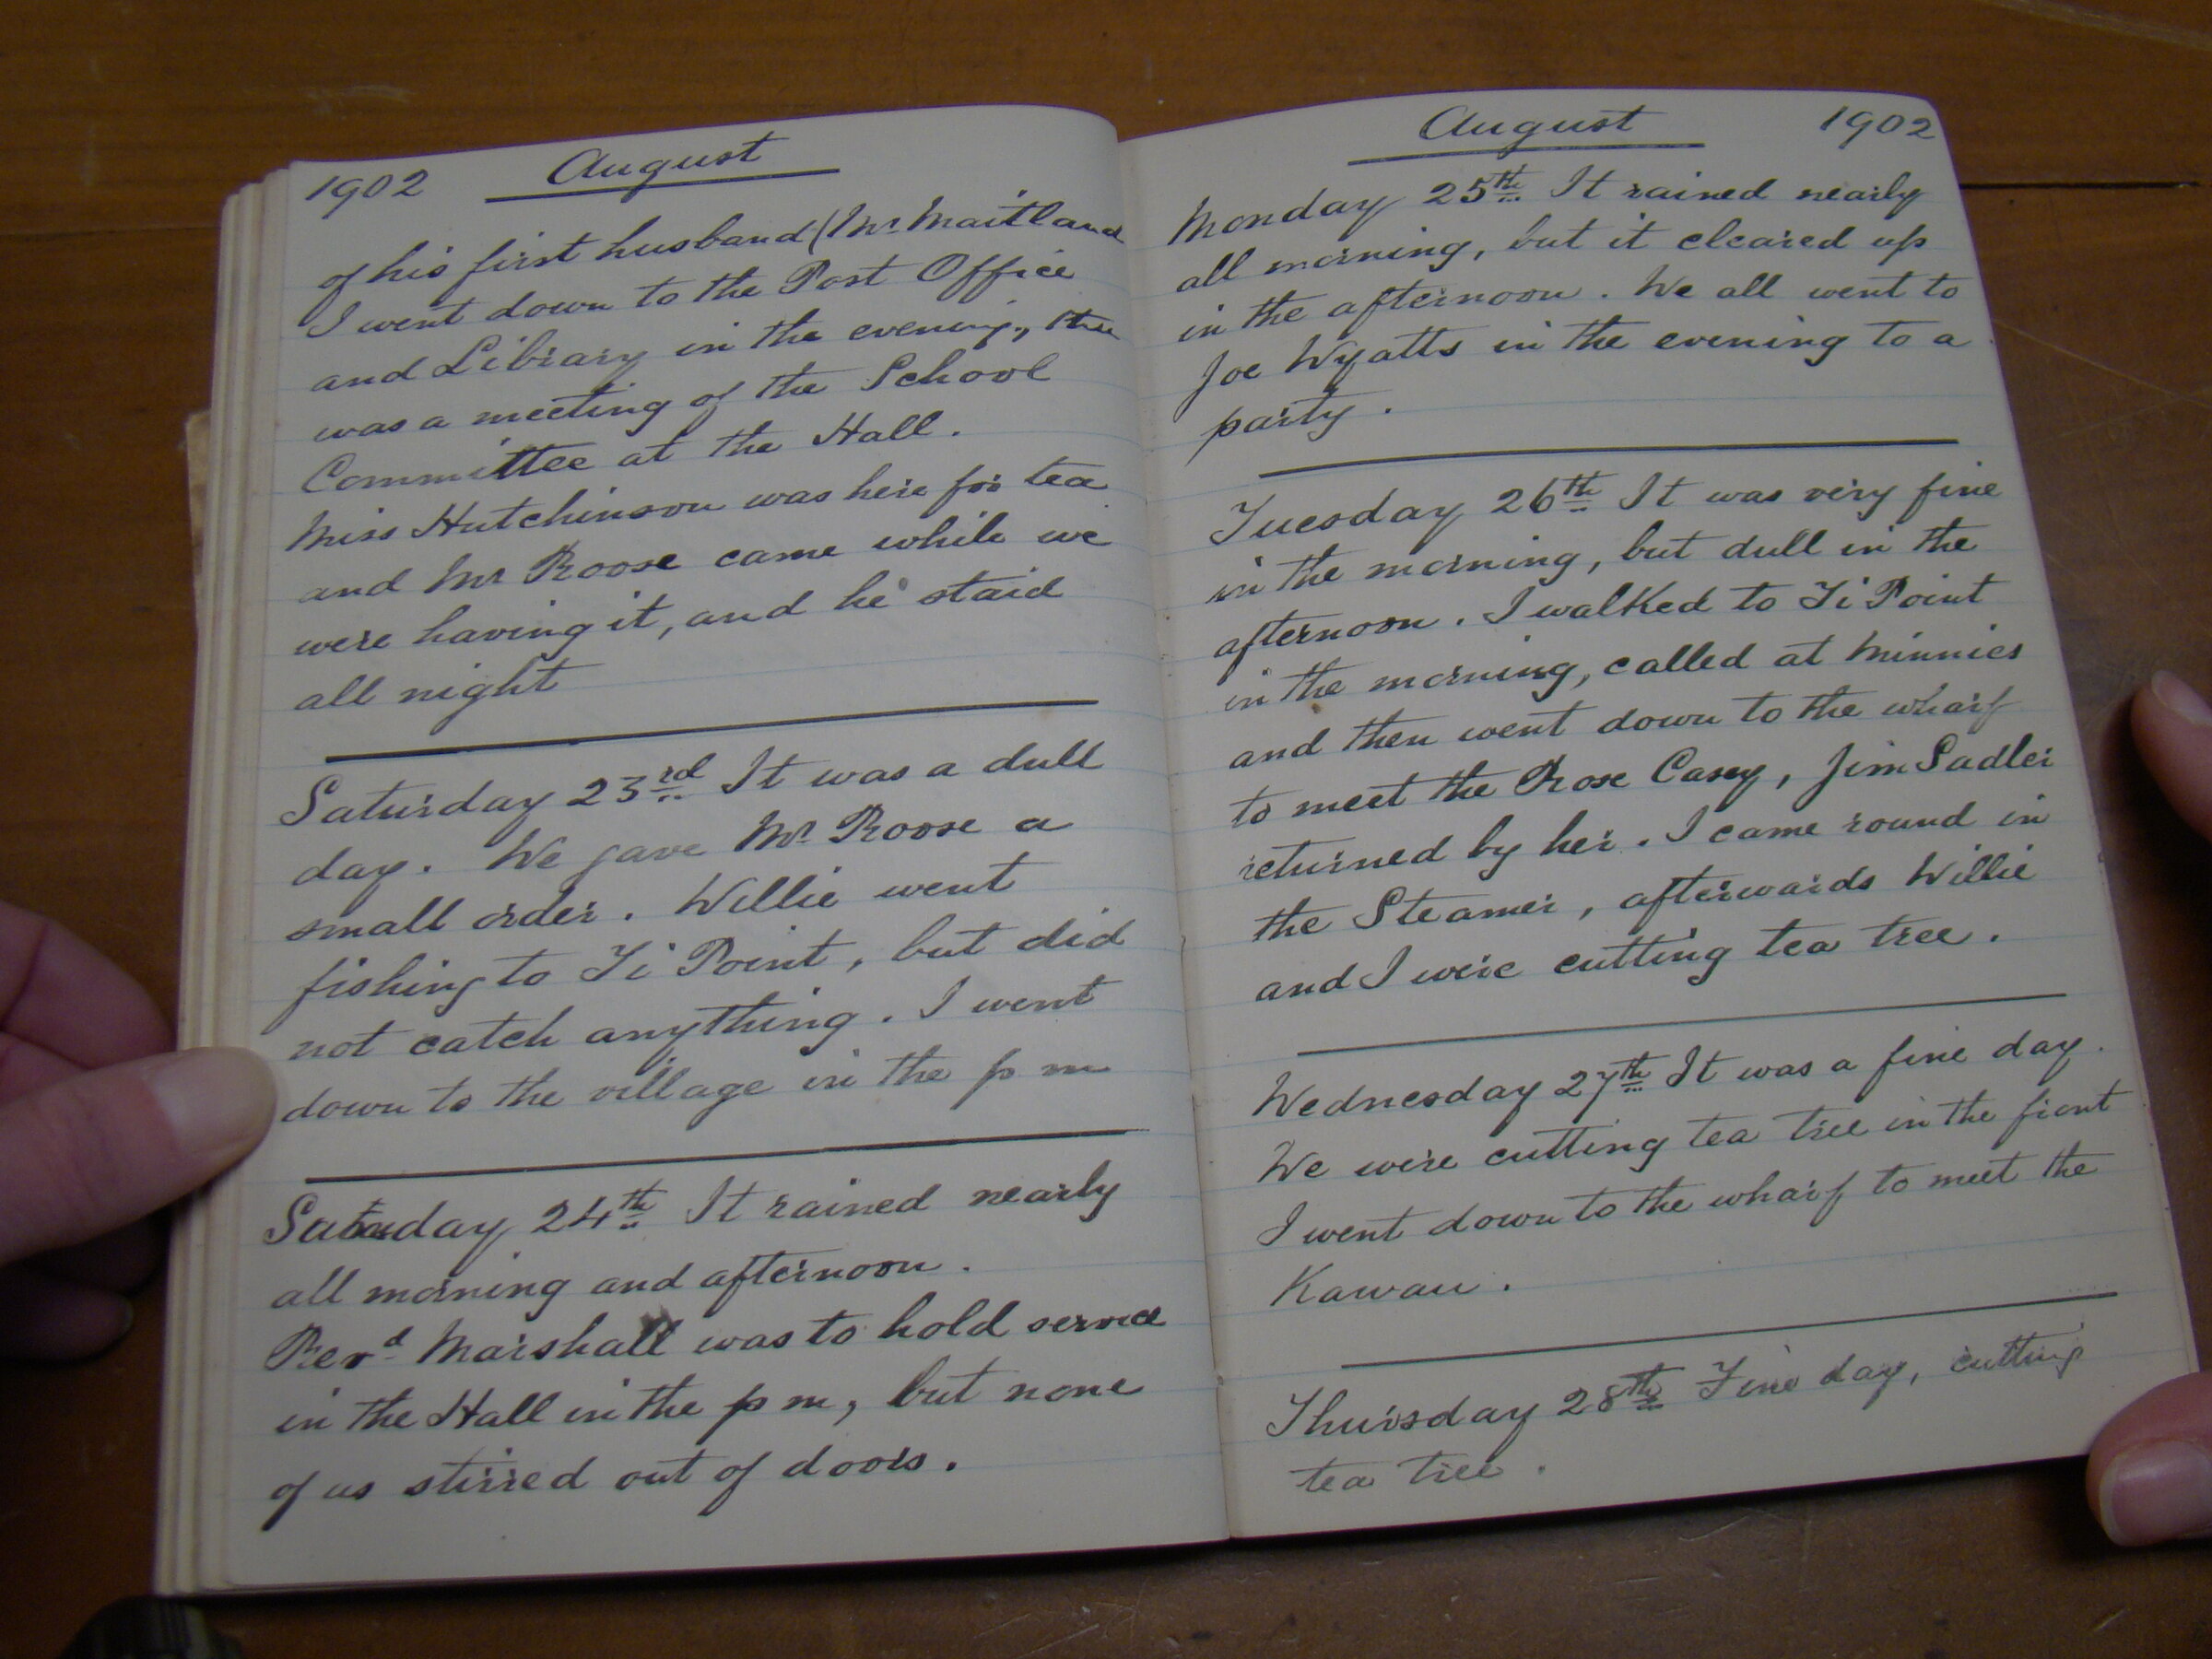 1902 August
of his first husband (Mr Maitland
I went down to the Post Office
and Library in the evening, there
was a meeting of the School
Committee at the Hall.
Miss Hutchinson was here for tea
and Mr Roose came while we
were having it, and he staid
all night
Saturday 23rd It was a dull
day. We gave Mr Roose a
small order. Willie went
fishing to Ti Point, but did
not catch anything. I went
down to the village in the p m
24th It rained nearly
all morning and afternoon.
Revd Marshall was to hold service
in the Hall in the p m, but none
of us stirred out of doors.
August 1902
Monday 25th It rained nearly
all morning, but it cleared up
in the afternoon. We all went to
Joe Wyatts in the evening to a
party.
Tuesday 26th It was very fine
in the morning, but dull in the
afternoon. I walked to Ti Point
in the morning, called at Minnies
and then went down to the wharf
to meet the Rose Casey, Jim Sadler
returned by her. I came round in
the Steamer, afterwards Willie
and I were cutting tea tree.
Wednesday 27th It was a fine day.
We were cutting tea tree in the front
I went down to the wharf to meet the
Kawau.
Thursday 28th Fine day, cutting
tea tree.